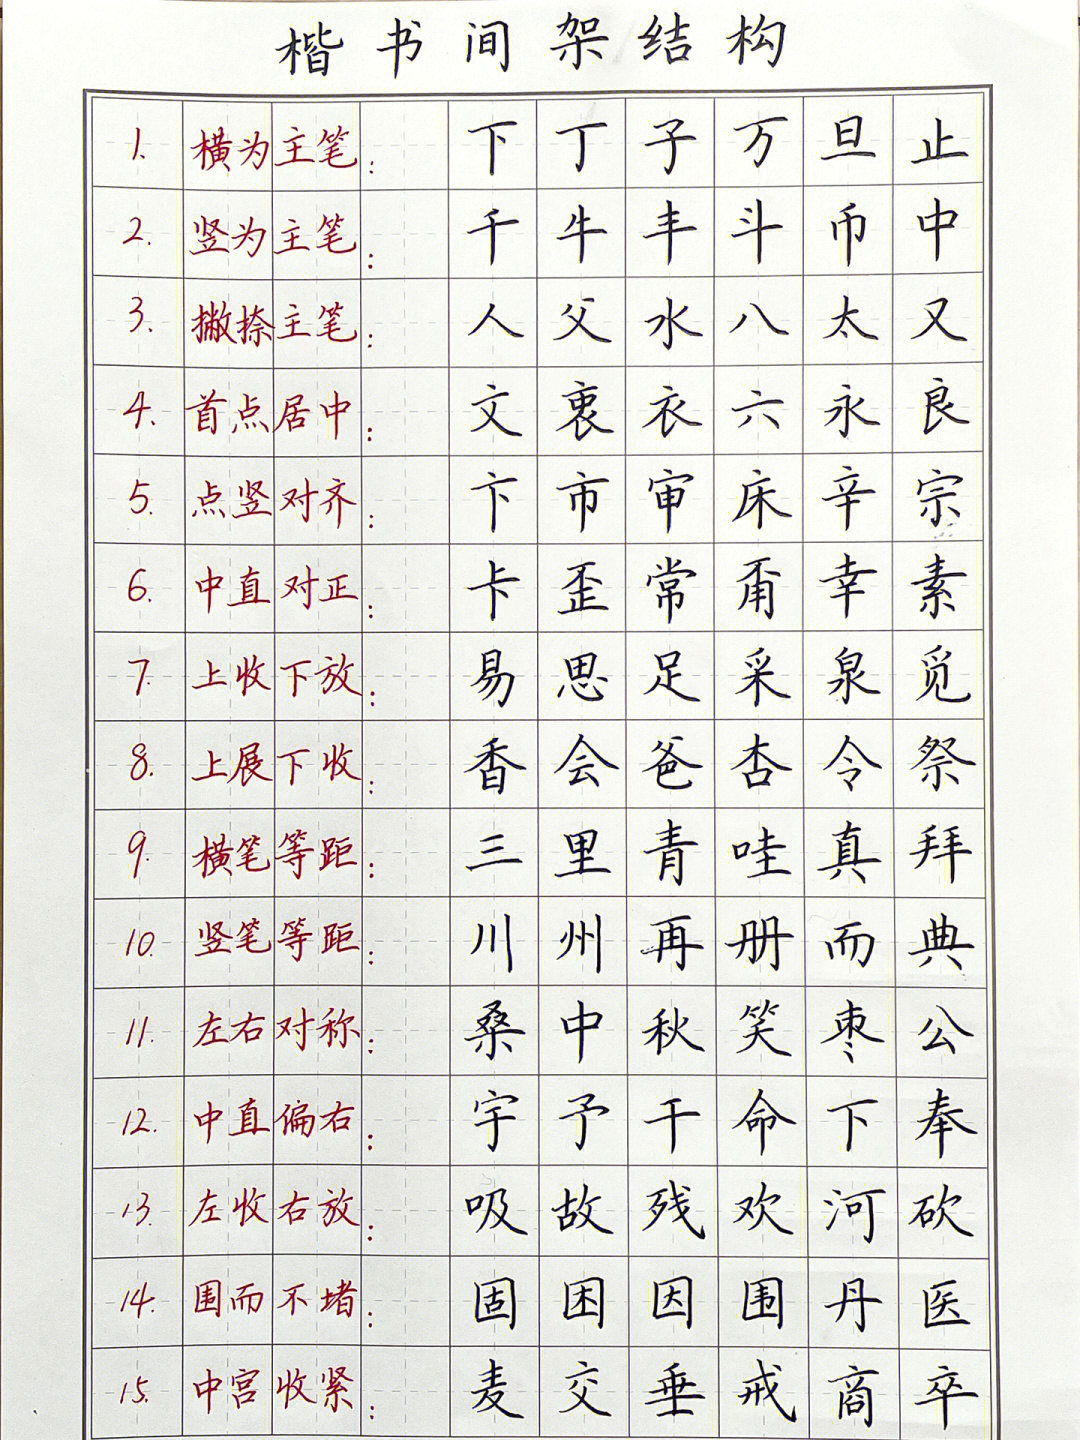 楷书间架结构
1. 横为主笔: 下丁子万旦止
2. 竖为主笔: 千牛丰斗币中
3. 撇捺主笔: 人父水八太又
4. 首点居中: 文衷衣六永良
5. 点竖对齐: 卞市审床辛宗
6. 中直对正: 卡歪常甭幸素
7. 上收下放: 易思足采泉觅
8. 上展下收: 香会爸杏令祭
9. 横笔等距: 三里青哇真拜
10. 竖笔等距: 川州再册而典
11. 左右对称: 桑中秋笑枣公
12. 中直偏右: 宇予干命下奉
13. 左收右放: 吸故残欢河砍
14. 围而不堵: 固困因围丹医
15. 中宫收紧: 麦交垂戒商卒